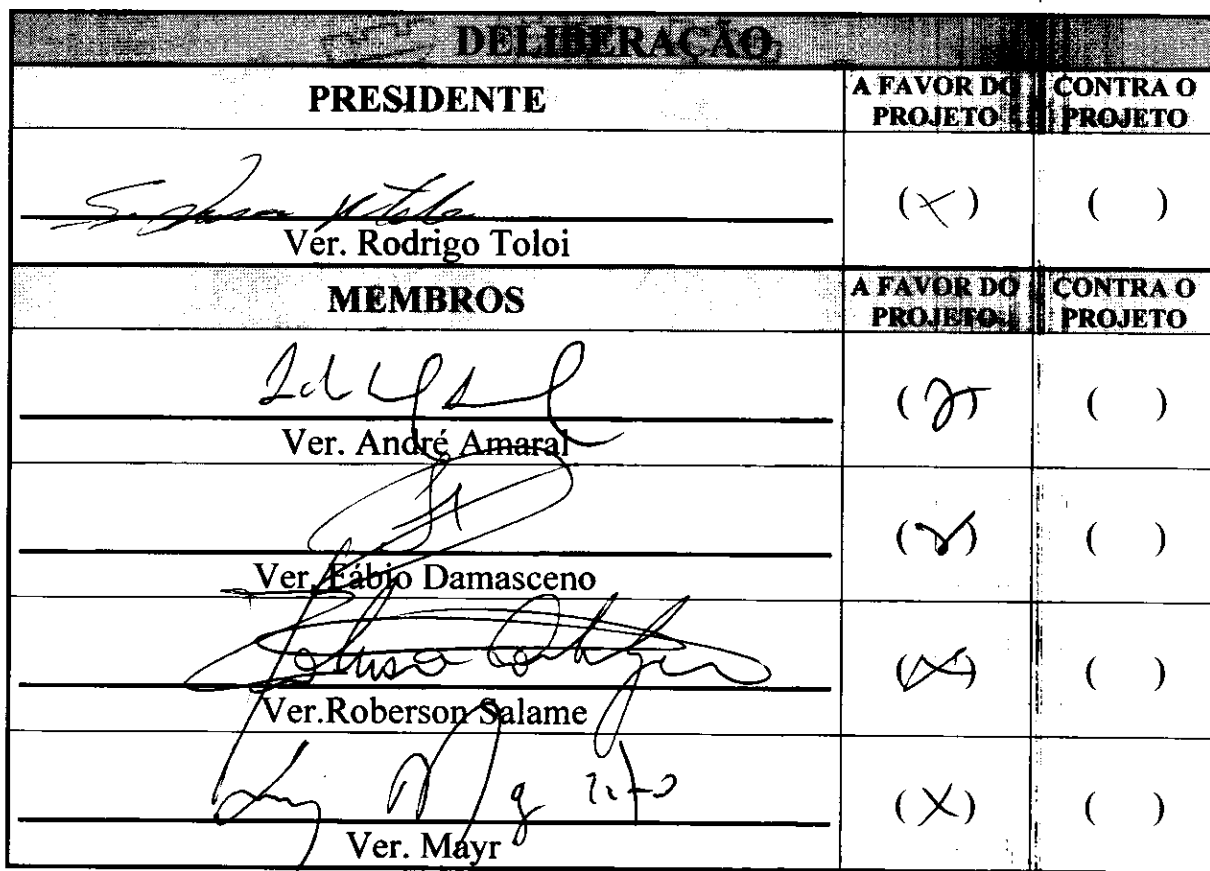 DELIBERAÇÃO
PRESIDENTE
A FAVOR DO PROJETO
CONTRA O PROJETO
(X) ( )
Ver. Rodrigo Toloi
MEMBROS
A FAVOR DO PROJETO
CONTRA O PROJETO
( ) 
Ver. André Amaral
( )
Ver. Fábio Damasceno
(X) ( )
Ver.Roberson Salame
(X) ( )
Ver. Mayr